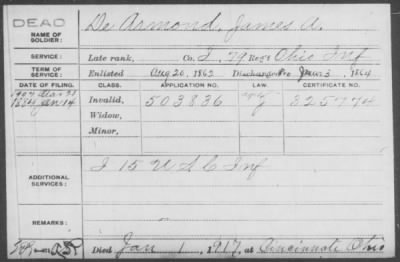 DEAD
NAME OF SOLDIER: De Armond, James A.
SERVICE: Late rank, Co. I, 79 Reg't Ohio Inf
TERM OF SERVICE: Enlisted Aug 20, 1862 Discharged Jan 3, 1864
DATE OF FILING. CLASS. APPLICATION NO. LAW. CERTIFICATE NO.
1907
1884 Jan 14 Invalid, 503836 825774
Widow,
Minor,
ADDITIONAL SERVICES: I 15 U S C Inf
REMARKS:
Died Jan 1, 1917, at Cincinnati Ohio